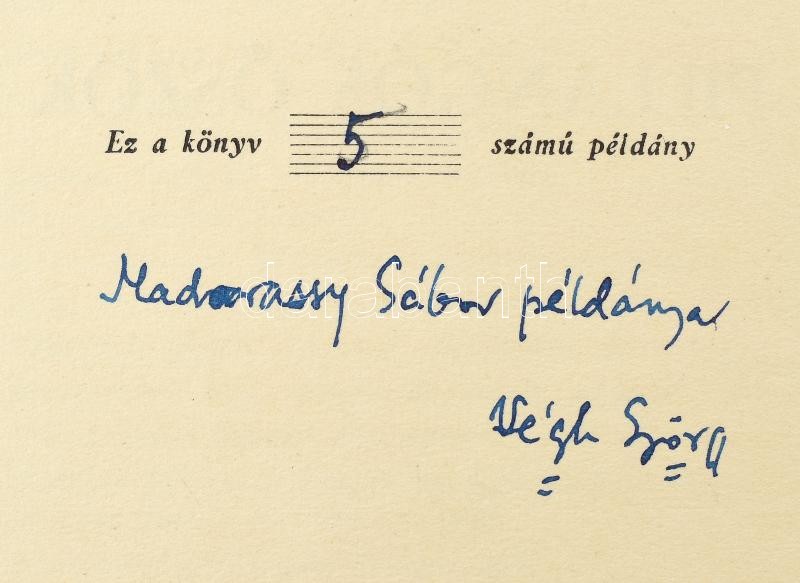 Ez a könyv 5 számú példány
Madarassy Gábor példánya
Végh György